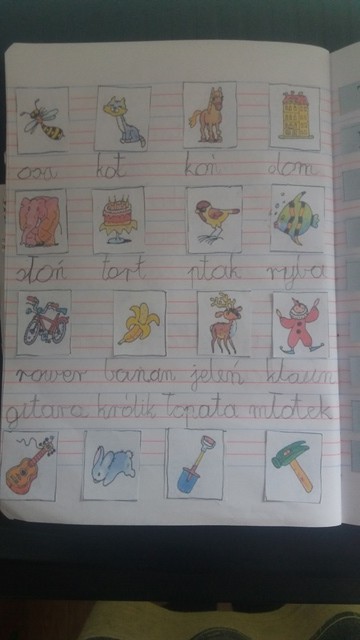 osa kot koń dom
słoń tort ptak ryba
rower banan jeleń klaun
gitara królik łopata młotek